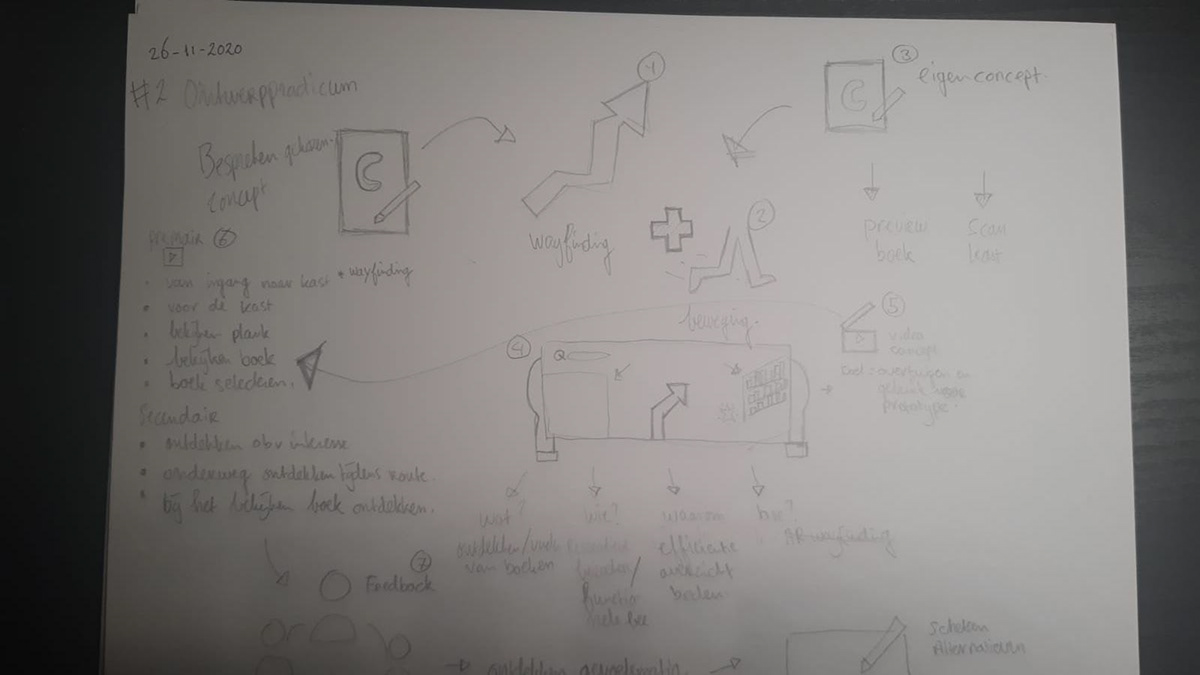 26-11-2020
#2 Ontwerppracticum
Besproken gekozen
concept
C
1
wayfinding
2
beweging.
3
C
eigen concept.
preview
boek
scan
kast
primair 6
van ingang naar kast + wayfinding
voor de kast
bekijken plank
bekijken boek
boek selecteren.
Secundair
ontdekken obv interesse
onderweg ontdekken tijdens route.
bij het bekijken boek ontdekken.
4
5
video
concept
Doel: overtuigen en
prototype.
wat?
ontdekken/
van boeken
wie?
waarom
efficientie
overzicht
bieden.
hoe?
AR-wayfinding
7
Feedback
ontdekken
Schetsen
Alternatieven